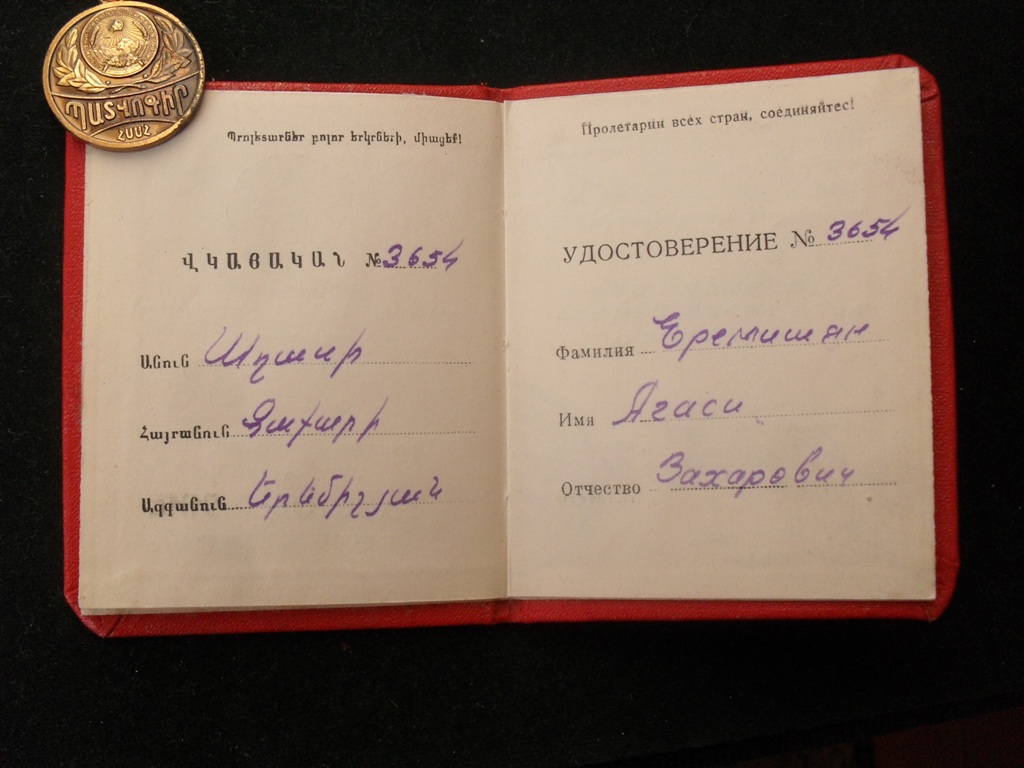 ՊԱՏՎՈԳԻՐ
ՀՍՍՀ
Պրոլետարներ բոլոր երկրների, միացե՛ք!
ՎԿԱՅԱԿԱՆ № 3654
Անուն Աղասի
Հայրանուն Զաքարի
Ազգանուն Երեմիշյան
Пролетарии всех стран, соединяйтес!
УДОСТОВЕРЕНИЕ № 3654
Фамилия Еремишян
Имя Агаси
Отчество Захарович